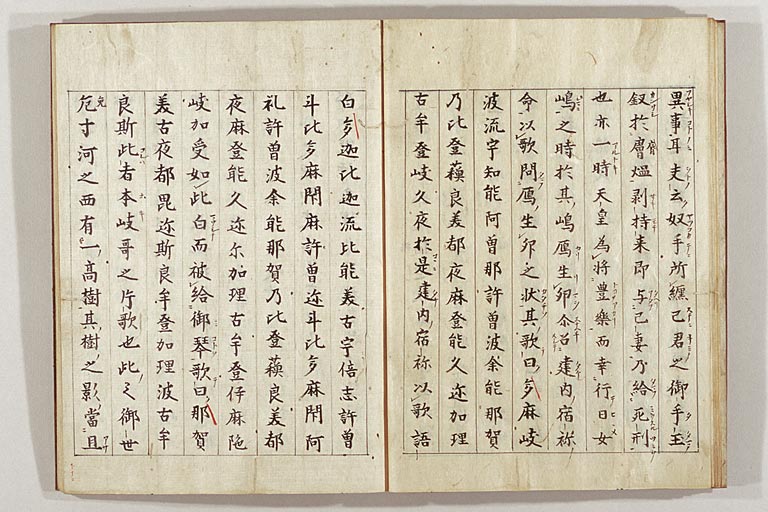 異事耳夫云奴乎所纏己君之御手玉
釼於膚熅剥持来即与己妻乃給死刑
也亦一時天皇為将豊樂而幸行日女
嶋之時於其嶋鴈生卵尒召建内宿祢
命以歌問鴈生卵之状其歌曰多麻岐
波流宇知能阿曽那許曽波余能那賀
乃比登蘓良美都夜麻登能久迩加理
古牟登岐久夜於是建内宿祢以歌語
白多迦比迦流比能美古宇倍志許曽
斗比多麻閇麻許曽迩斗比多麻閇阿
礼許曽波余能那賀乃比登蘓良美都
夜麻登能久迩尓加理古牟登伃麻陁
岐加受如此白而被給御琴歌曰那賀
美古夜都毘迩斯良牟登加理波古牟
良斯此者本岐哥之片歌也此之御世
免寸河之西有一高樹其樹之影當旦